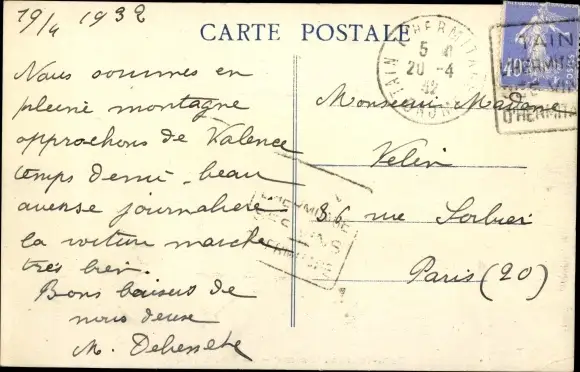 19/4 1932
CARTE POSTALE
Nous sommes en
pleine montagne
approchons de Valence
temps demi-beau
averse journalière
la voiture marche
très bien.
Bons baisers de
nous deux
M.
TAIN L'HERMITAGE
5
20 -4
32
DROME
TAIN
L'HERMITAGE
SES VINS
D'HERMITAGE
Monsieur, Madame
Velin
86 rue Sorbier
Paris (20)
L'HERMITAGE
SES VINS
HERMITAGE